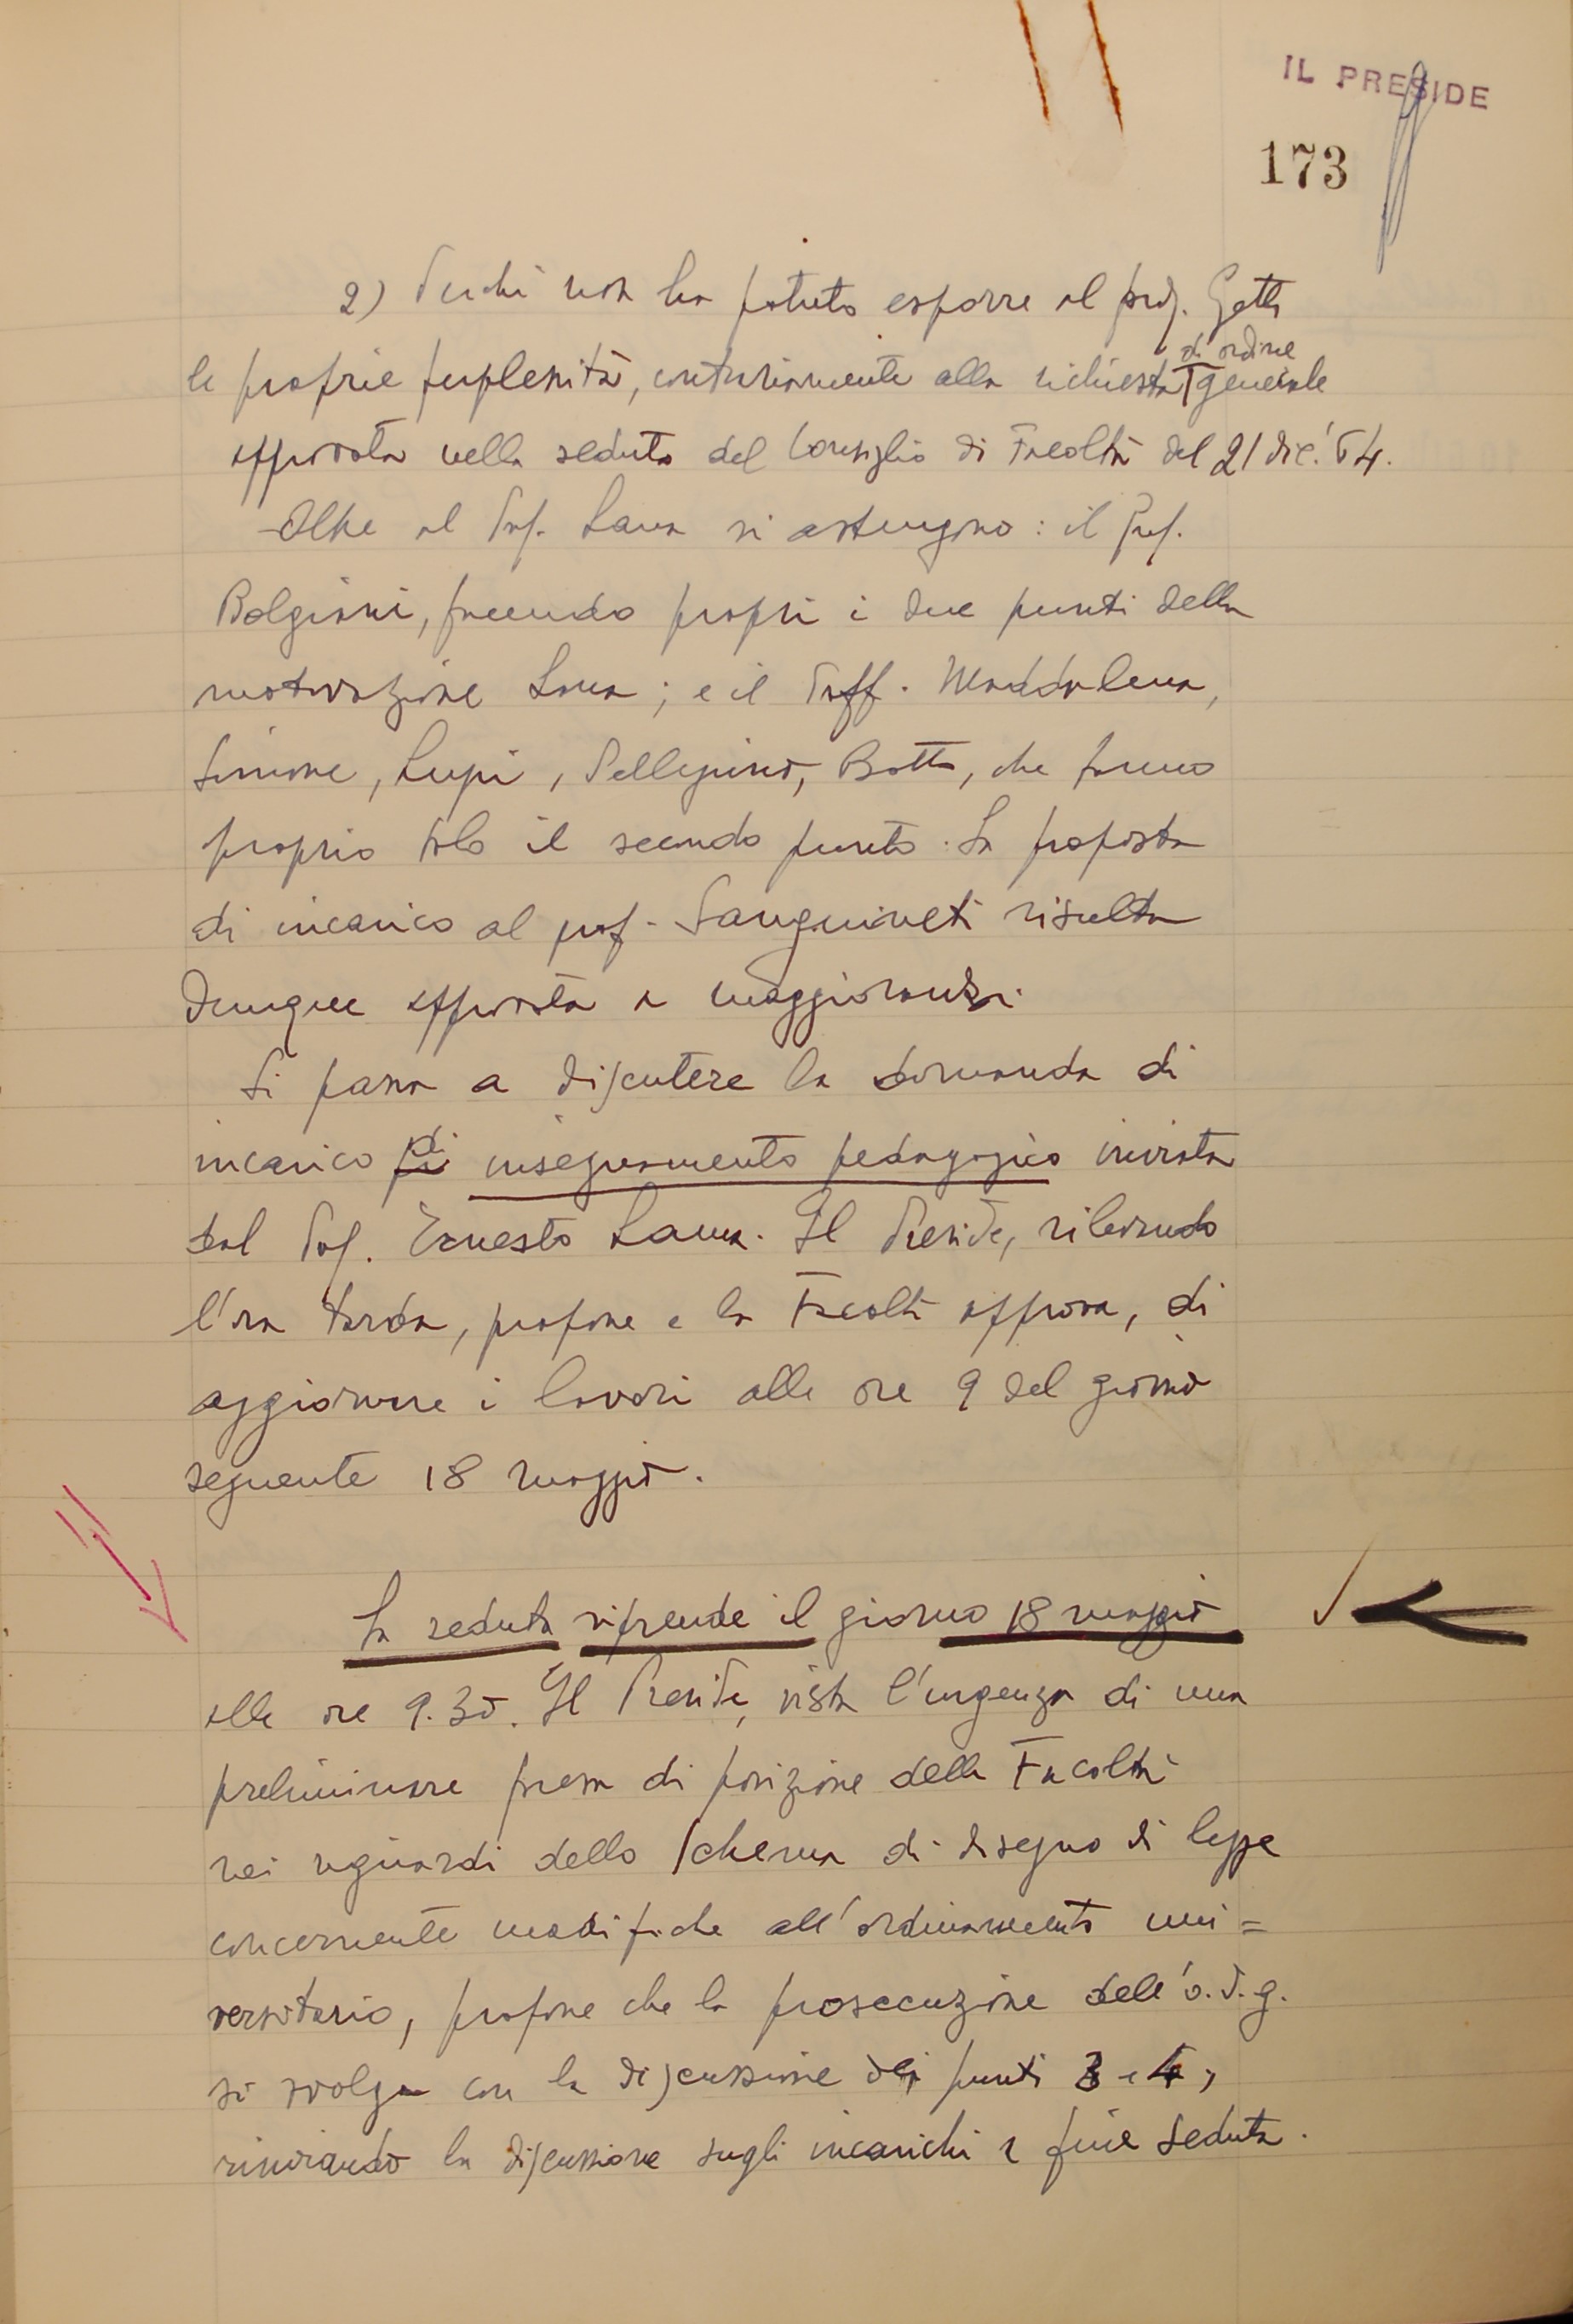 IL PRESIDE
173
2) Perché non ha potuto esporre al prof. Getto
di ordine
le proprie perplessità, contrariamente alla richiesta generale
approvata nella seduta del Consiglio di Facoltà del 21 dic. '64.
Oltre al Prof. Lama si astengono: il Prof.
Bolgiani, facendo propri i due punti della
motivazione Lama; e il Proff. Maddalena,
Simone, Lupi, Pellegrino, Botto, che fanno
proprio solo il secondo punto. La proposta
di incarico al prof. Sanguineti risulta
dunque approvata a maggioranza.
Si passa a discutere la domanda di
incarico di insegnamento pedagogico inviata
dal Prof. Ernesto Lama. Il Preside, rilevando
l'ora tarda, propone e la Facoltà approva, di
aggiornare i lavori alle ore 9 del giorno
seguente 18 maggio.
La seduta riprende il giorno 18 maggio
alle ore 9.30. Il Preside, vista l'urgenza di una
preliminare presa di posizione della Facoltà
nei riguardi dello Schema di disegno di legge
concernente modifiche all'ordinamento uni=
versitario, propone che la prosecuzione dell'o.d.g.
si svolga con la discussione dei punti 3 e 4,
rinviando la discussione sugli incarichi a fine seduta.